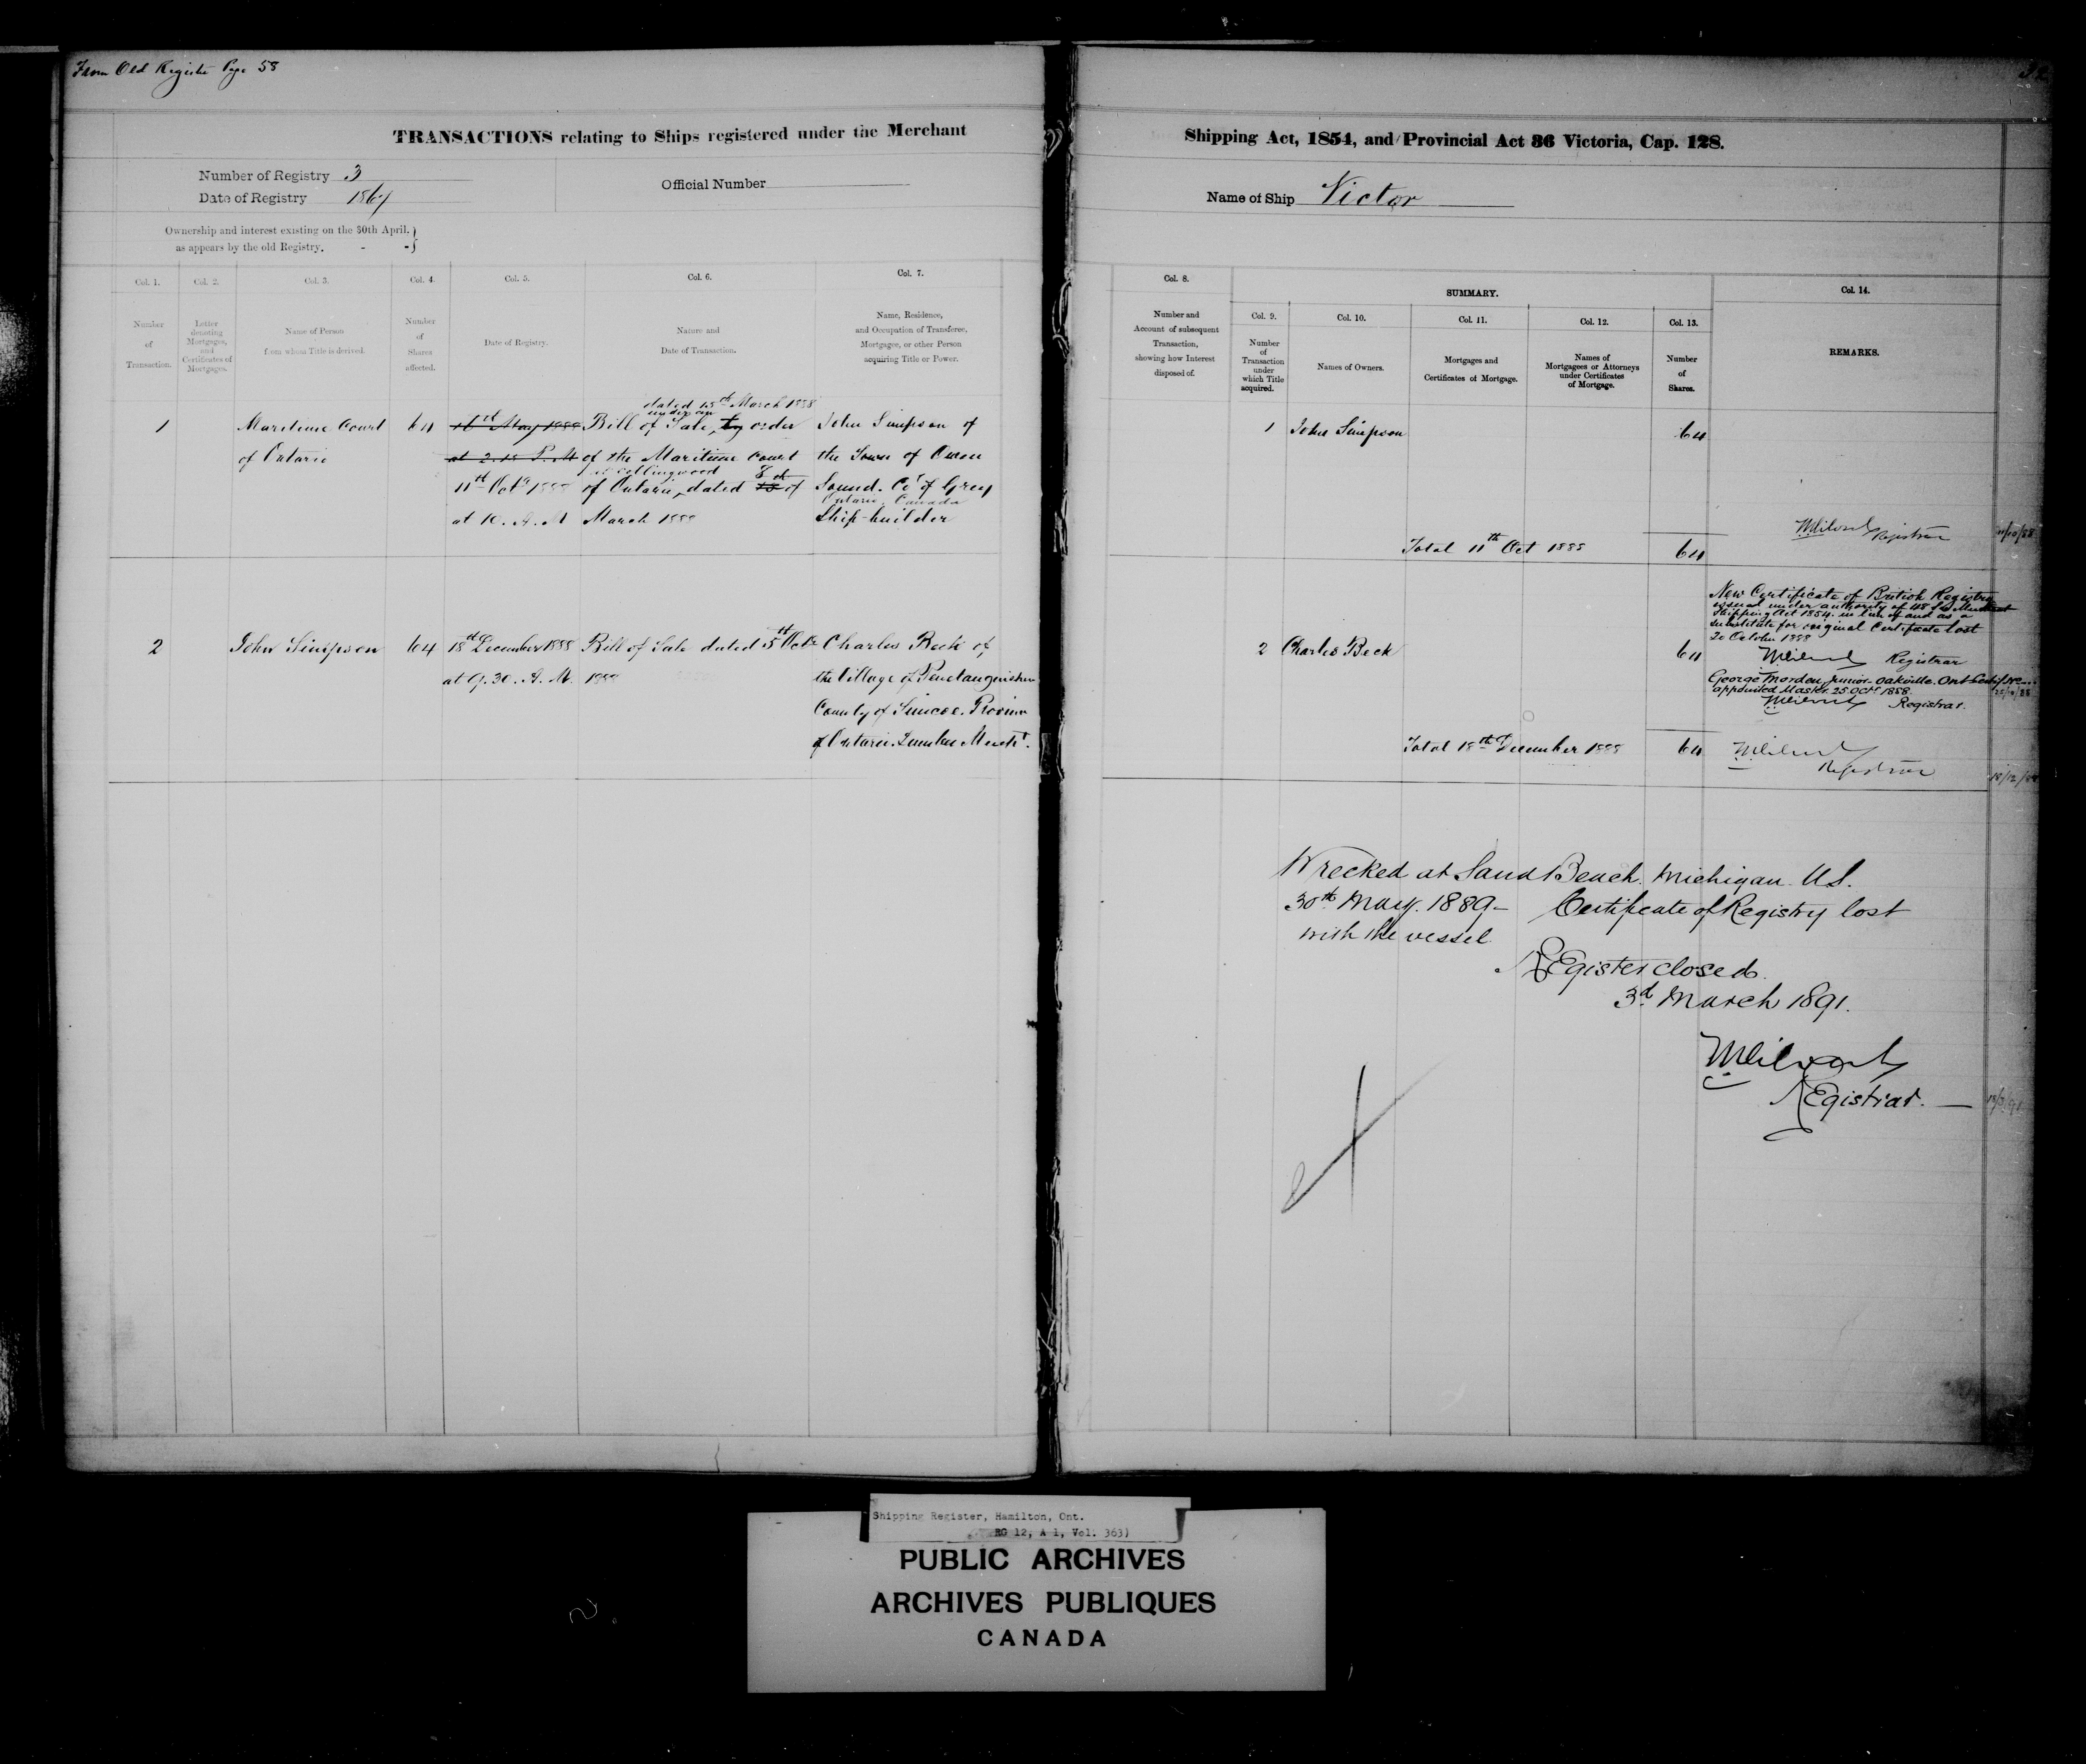 From Old Register Page 58
TRANSACTIONS relating to Ships registered under the Merchant
Number of Registry 3
Date of Registry 1864
Official Number
Ownership and interest existing on the 30th April,
as appears by the old Registry.
Col. 1.
Col. 2.
Col. 3.
Col. 4.
Col. 5.
Col. 6.
Col. 7.
Number
of
Transaction.
Letter
denoting
Mortgages,
and
Certificates of
Mortgages.
Name of Person
from whom Title is derived.
Number
of
Shares
affected.
Date of Registry.
Nature and
Date of Transaction.
Name, Residence,
and Occupation of Transferee,
Mortgagee, or other Person
acquiring Title or Power.
1
Maritime Court
of Ontario
64
16th May 1888
at 2.15 P.M
11th Octr 1888
at 10. A. M
dated 15th March 1888
under an
Bill of Sale, by order
of the Maritime Court
at Collingwood
of Ontario, dated 15 8th of
March 1888
John Simpson of
the Town of Owen
Sound. Co of Grey
Ontario, Canada
Ship-builder
2
John Simpson
64
18th December 1888
at 9.30. A. M.
Bill of Sale dated 5th Octr
1888
Charles Beck of
the Village of Penetanguishene
County of Simcoe. Province
of Ontario. Lumber Mercht.
Shipping Act, 1854, and Provincial Act 36 Victoria, Cap. 128.
Name of Ship Victor
Col. 8.
Number and
Account of subsequent
Transaction,
showing how Interest
disposed of.
SUMMARY.
Col. 9.
Col. 10.
Col. 11.
Col. 12.
Col. 13.
Col. 14.
Number
of
Transaction
under
which Title
acquired.
Names of Owners.
Mortgages and
Certificates of Mortgage.
Names of
Mortgagees or Attorneys
under Certificates
of Mortgage.
Number
of
Shares.
REMARKS.
1 John Simpson 64
Registrar
11/10/88
Total 11th Oct 1888 64
New Certificate of British Registry
issued under authority of 48 S Merchant
Shipping Act 1854. in lieu of and as a
substitute for original Certificate lost
20 October 1888
Registrar
2 Charles Beck 64
George Morden, junior. Oakville. Ont
appointed Master. 25 Octr 1888.
Registrar.
Total 18th December 1888 64
Registrar
18/12/88
Wrecked at Sand Beach. Michigan. U.S.
30th May. 1889 - Certificate of Registry lost
with the vessel.
Register closed.
3d March 1891.
Registrar. —
Shipping Register, Hamilton, Ont.
RG 12, A 1, Vol. 363)
PUBLIC ARCHIVES
ARCHIVES PUBLIQUES
CANADA